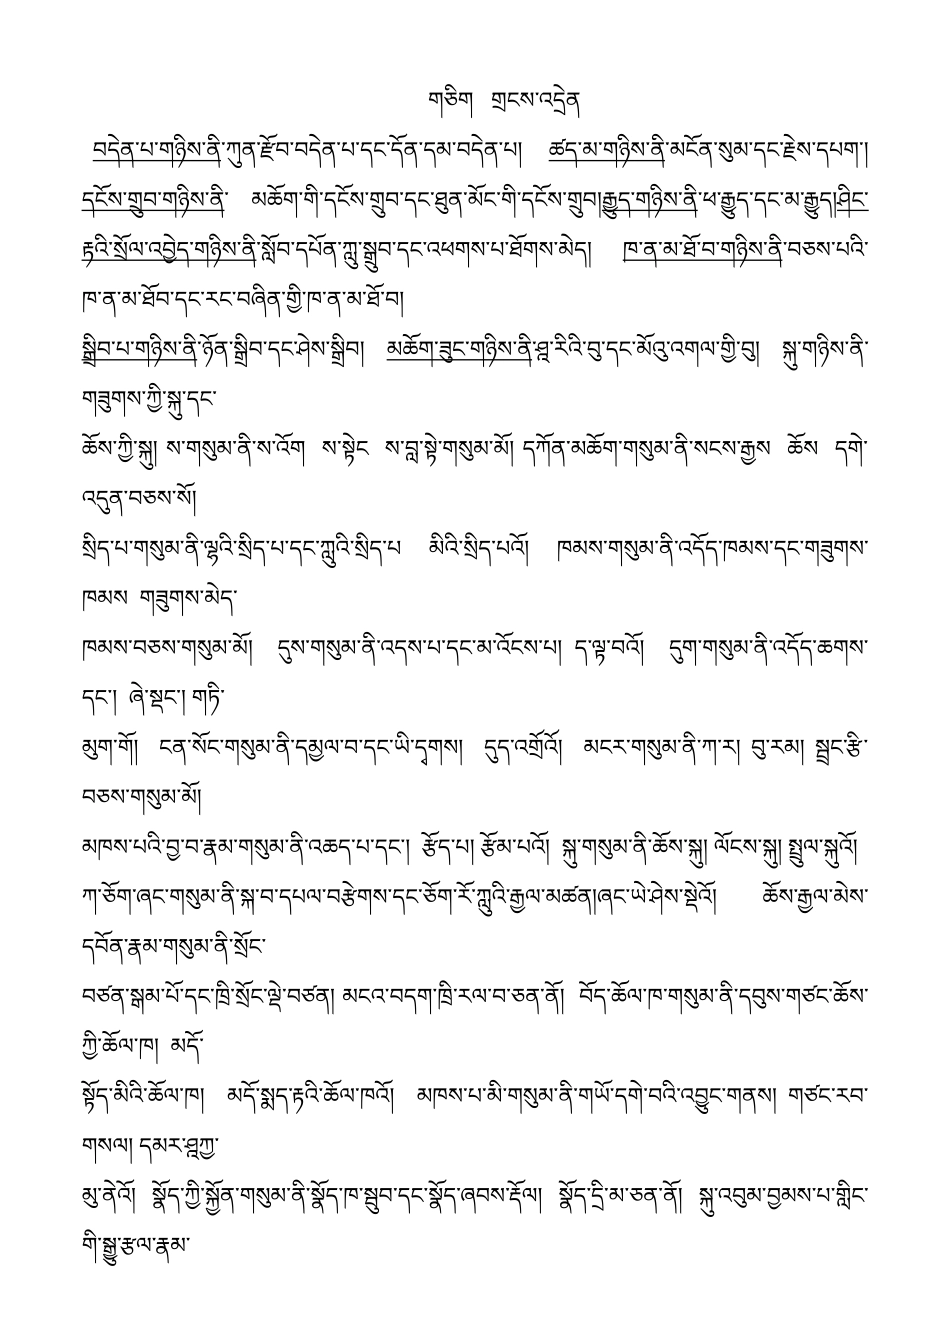 གཅིག གྲངས་འདྲེན
བདེན་པ་གཉིས་ནི་ཀུན་རྫོབ་བདེན་པ་དང་དོན་དམ་བདེན་པ། ཚད་མ་གཉིས་ནི་མངོན་སུམ་དང་རྗེས་དཔག་།
དངོས་གྲུབ་གཉིས་ནི་ མཆོག་གི་དངོས་གྲུབ་དང་ཐུན་མོང་གི་དངོས་གྲུབ།རྒྱུད་གཉིས་ནི་ཕ་རྒྱུད་དང་མ་རྒྱུད།ཤིང་
རྟའི་སྲོལ་འབྱེད་གཉིས་ནི་སློབ་དཔོན་ཀླུ་སྒྲུབ་དང་འཕགས་པ་ཐོགས་མེད། ཁ་ན་མ་ཐོ་བ་གཉིས་ནི་བཅས་པའི་
ཁ་ན་མ་ཐོབ་དང་རང་བཞིན་གྱི་ཁ་ན་མ་ཐོ་བ།
སྒྲིབ་པ་གཉིས་ནི་ཉོན་སྒྲིབ་དང་ཤེས་སྒྲིབ། མཆོག་ཟུང་གཉིས་ནི་ཤཱ་རིའི་བུ་དང་མོའུ་འགལ་གྱི་བུ། སྐུ་གཉིས་ནི་
གཟུགས་ཀྱི་སྐུ་དང་
ཆོས་ཀྱི་སྐུ། ས་གསུམ་ནི་ས་འོག ས་སྟེང ས་བླ་སྟེ་གསུམ་མོ། དཀོན་མཆོག་གསུམ་ནི་སངས་རྒྱས ཆོས དགེ་
འདུན་བཅས་སོ།
སྲིད་པ་གསུམ་ནི་ལྷའི་སྲིད་པ་དང་ཀླུའི་སྲིད་པ མིའི་སྲིད་པའོ། ཁམས་གསུམ་ནི་འདོད་ཁམས་དང་གཟུགས་
ཁམས གཟུགས་མེད་
ཁམས་བཅས་གསུམ་མོ། དུས་གསུམ་ནི་འདས་པ་དང་མ་འོངས་པ། ད་ལྟ་བའོ། དུག་གསུམ་ནི་འདོད་ཆགས་
དང་། ཞེ་སྡང་། གཏི་
མུག་གོ། ངན་སོང་གསུམ་ནི་དམྱལ་བ་དང་ཡི་དྭགས། དུད་འགྲོའོ། མངར་གསུམ་ནི་ཀ་ར། བུ་རམ། སྦྲང་རྩི་
བཅས་གསུམ་མོ།
མཁས་པའི་བྱ་བ་རྣམ་གསུམ་ནི་འཆད་པ་དང་། རྩོད་པ། རྩོམ་པའོ། སྐུ་གསུམ་ནི་ཆོས་སྐུ། ལོངས་སྐུ། སྤྲུལ་སྐུའོ།
ཀ་ཅོག་ཞང་གསུམ་ནི་སྐ་བ་དཔལ་བརྩེགས་དང་ཅོག་རོ་ཀླུའི་རྒྱལ་མཚན།ཞང་ཡེ་ཤེས་སྡེའོ། ཆོས་རྒྱལ་མེས་
དབོན་རྣམ་གསུམ་ནི་སྲོང་
བཙན་སྒམ་པོ་དང་ཁྲི་སྲོང་ལྡེ་བཙན། མངའ་བདག་ཁྲི་རལ་བ་ཅན་ནོ། བོད་ཆོལ་ཁ་གསུམ་ནི་དབུས་གཙང་ཆོས་
ཀྱི་ཆོལ་ཁ། མདོ་
སྟོད་མིའི་ཆོལ་ཁ། མདོ་སྨད་རྟའི་ཆོལ་ཁའོ། མཁས་པ་མི་གསུམ་ནི་གཡོ་དགེ་བའི་འབྱུང་གནས། གཙང་རབ་
གསལ། དམར་ཤཱཀྱ་
མུ་ནེའོ། སྣོད་ཀྱི་སྐྱོན་གསུམ་ནི་སྣོད་ཁ་སྦུབ་དང་སྣོད་ཞབས་རྡོལ། སྣོད་དྲི་མ་ཅན་ནོ། སྐུ་འབུམ་བྱམས་པ་གླིང་
གི་སྒྱུ་རྩལ་རྣམ་